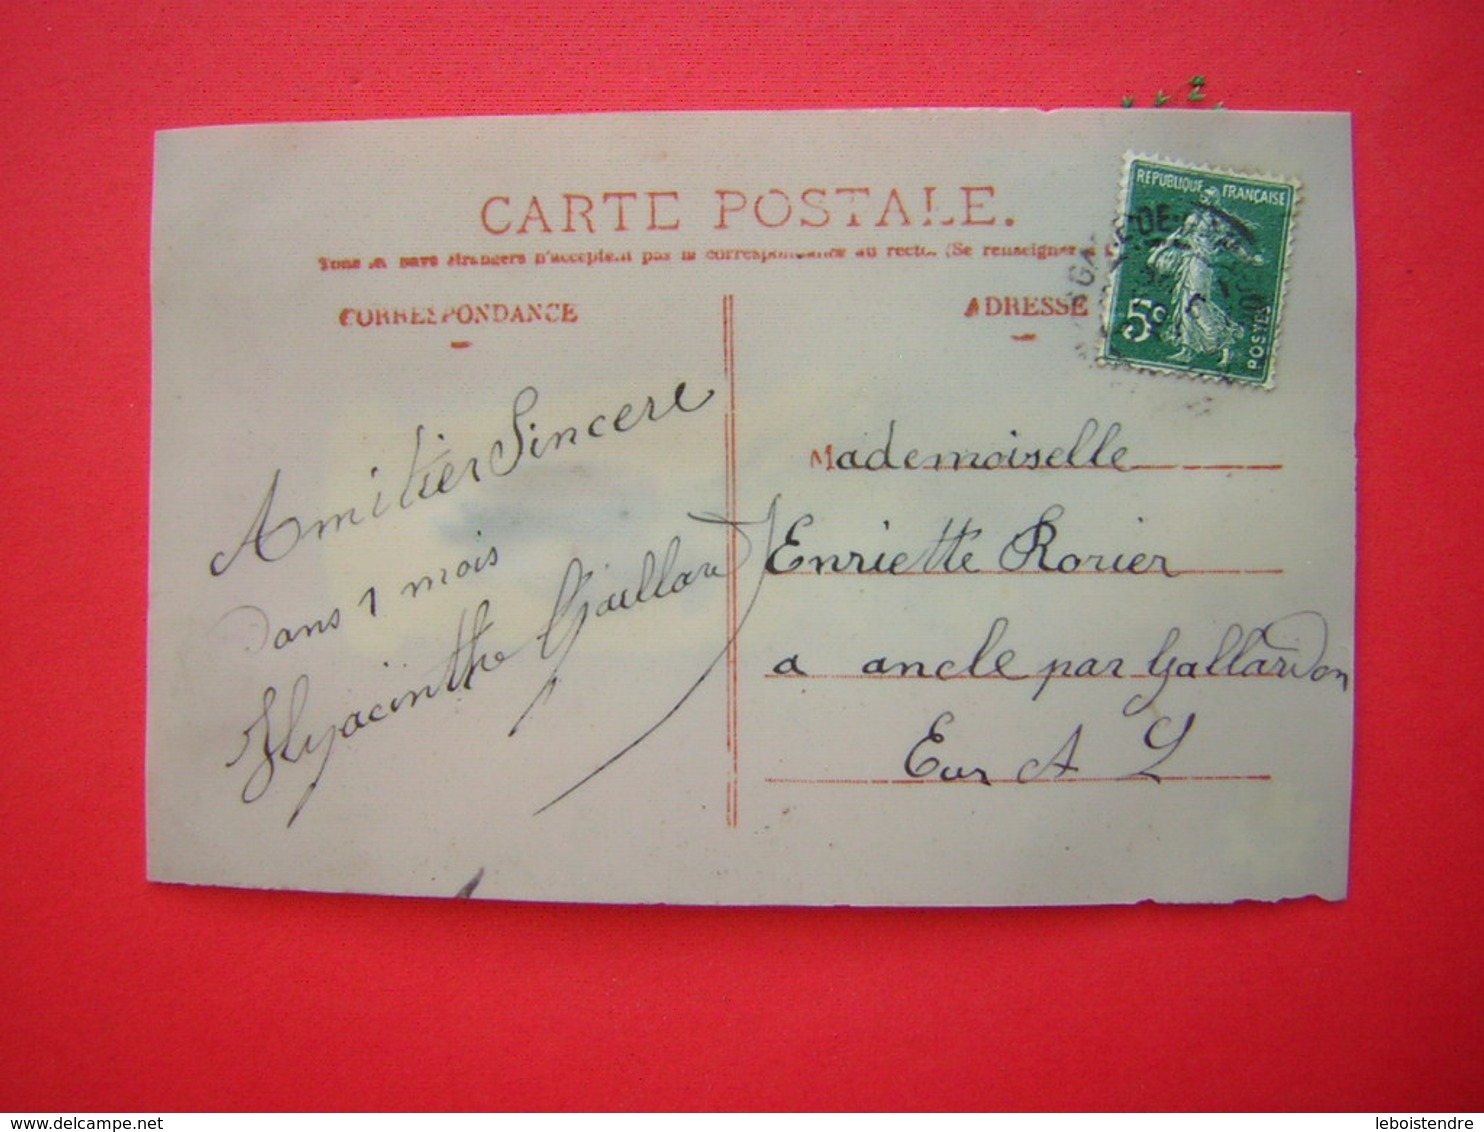 CARTE POSTALE.
Tous les pays étrangers n'acceptent pas la correspondance au recto. (Se renseigner
CORRESPONDANCE
ADRESSE
REPUBLIQUE FRANÇAISE
5c
POSTES
Amitier Sincere
Dans 1 mois
Hyacinthe Gaillard
Mademoiselle
Enriette Rorier
a ancle par Gallardon
Eur A L
leboistendre